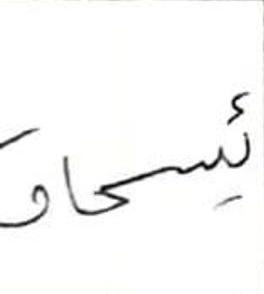 ئیسحاق